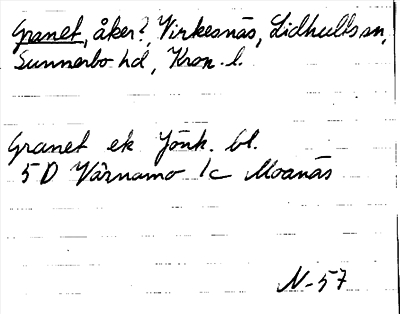 Granet, åker?, Virkesnäs, Lidhults sn,
Sunnerbo hd, Kron. l.
Granet ek Jönk. bl.
5 D Värnamo 1c Moanäs
N-57